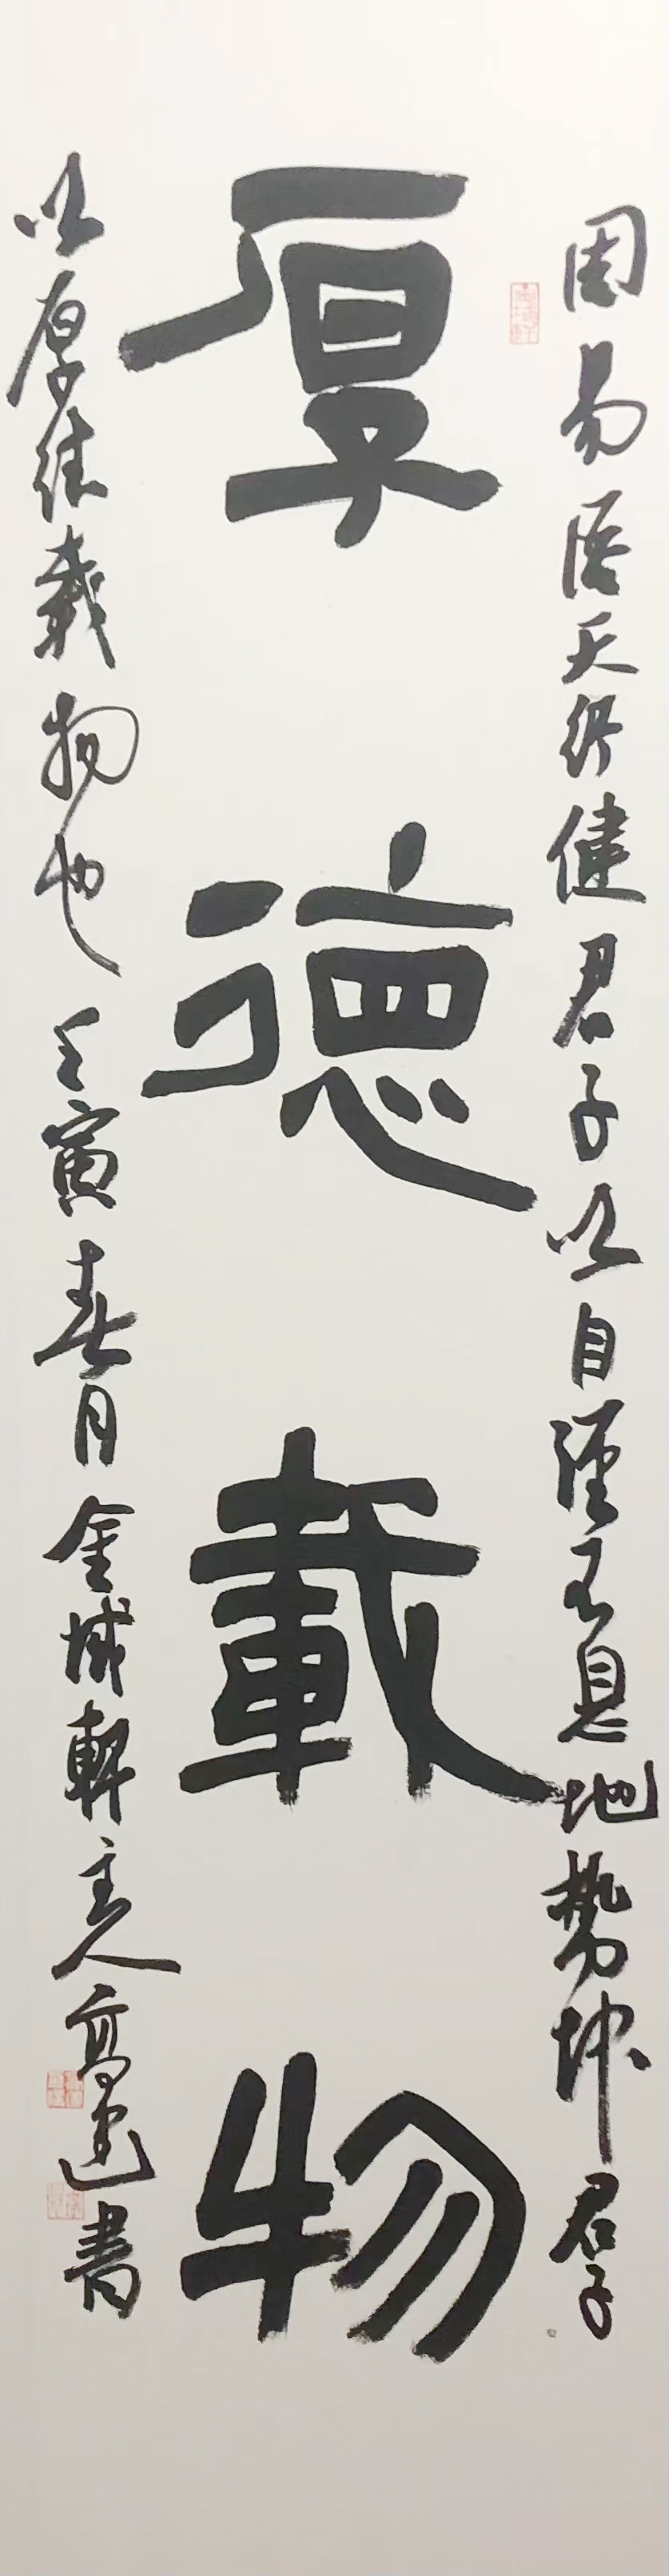 周易语天行健君子以自强不息地势坤君子
厚德載物
以厚德載物也壬寅春月金城軒主人高書